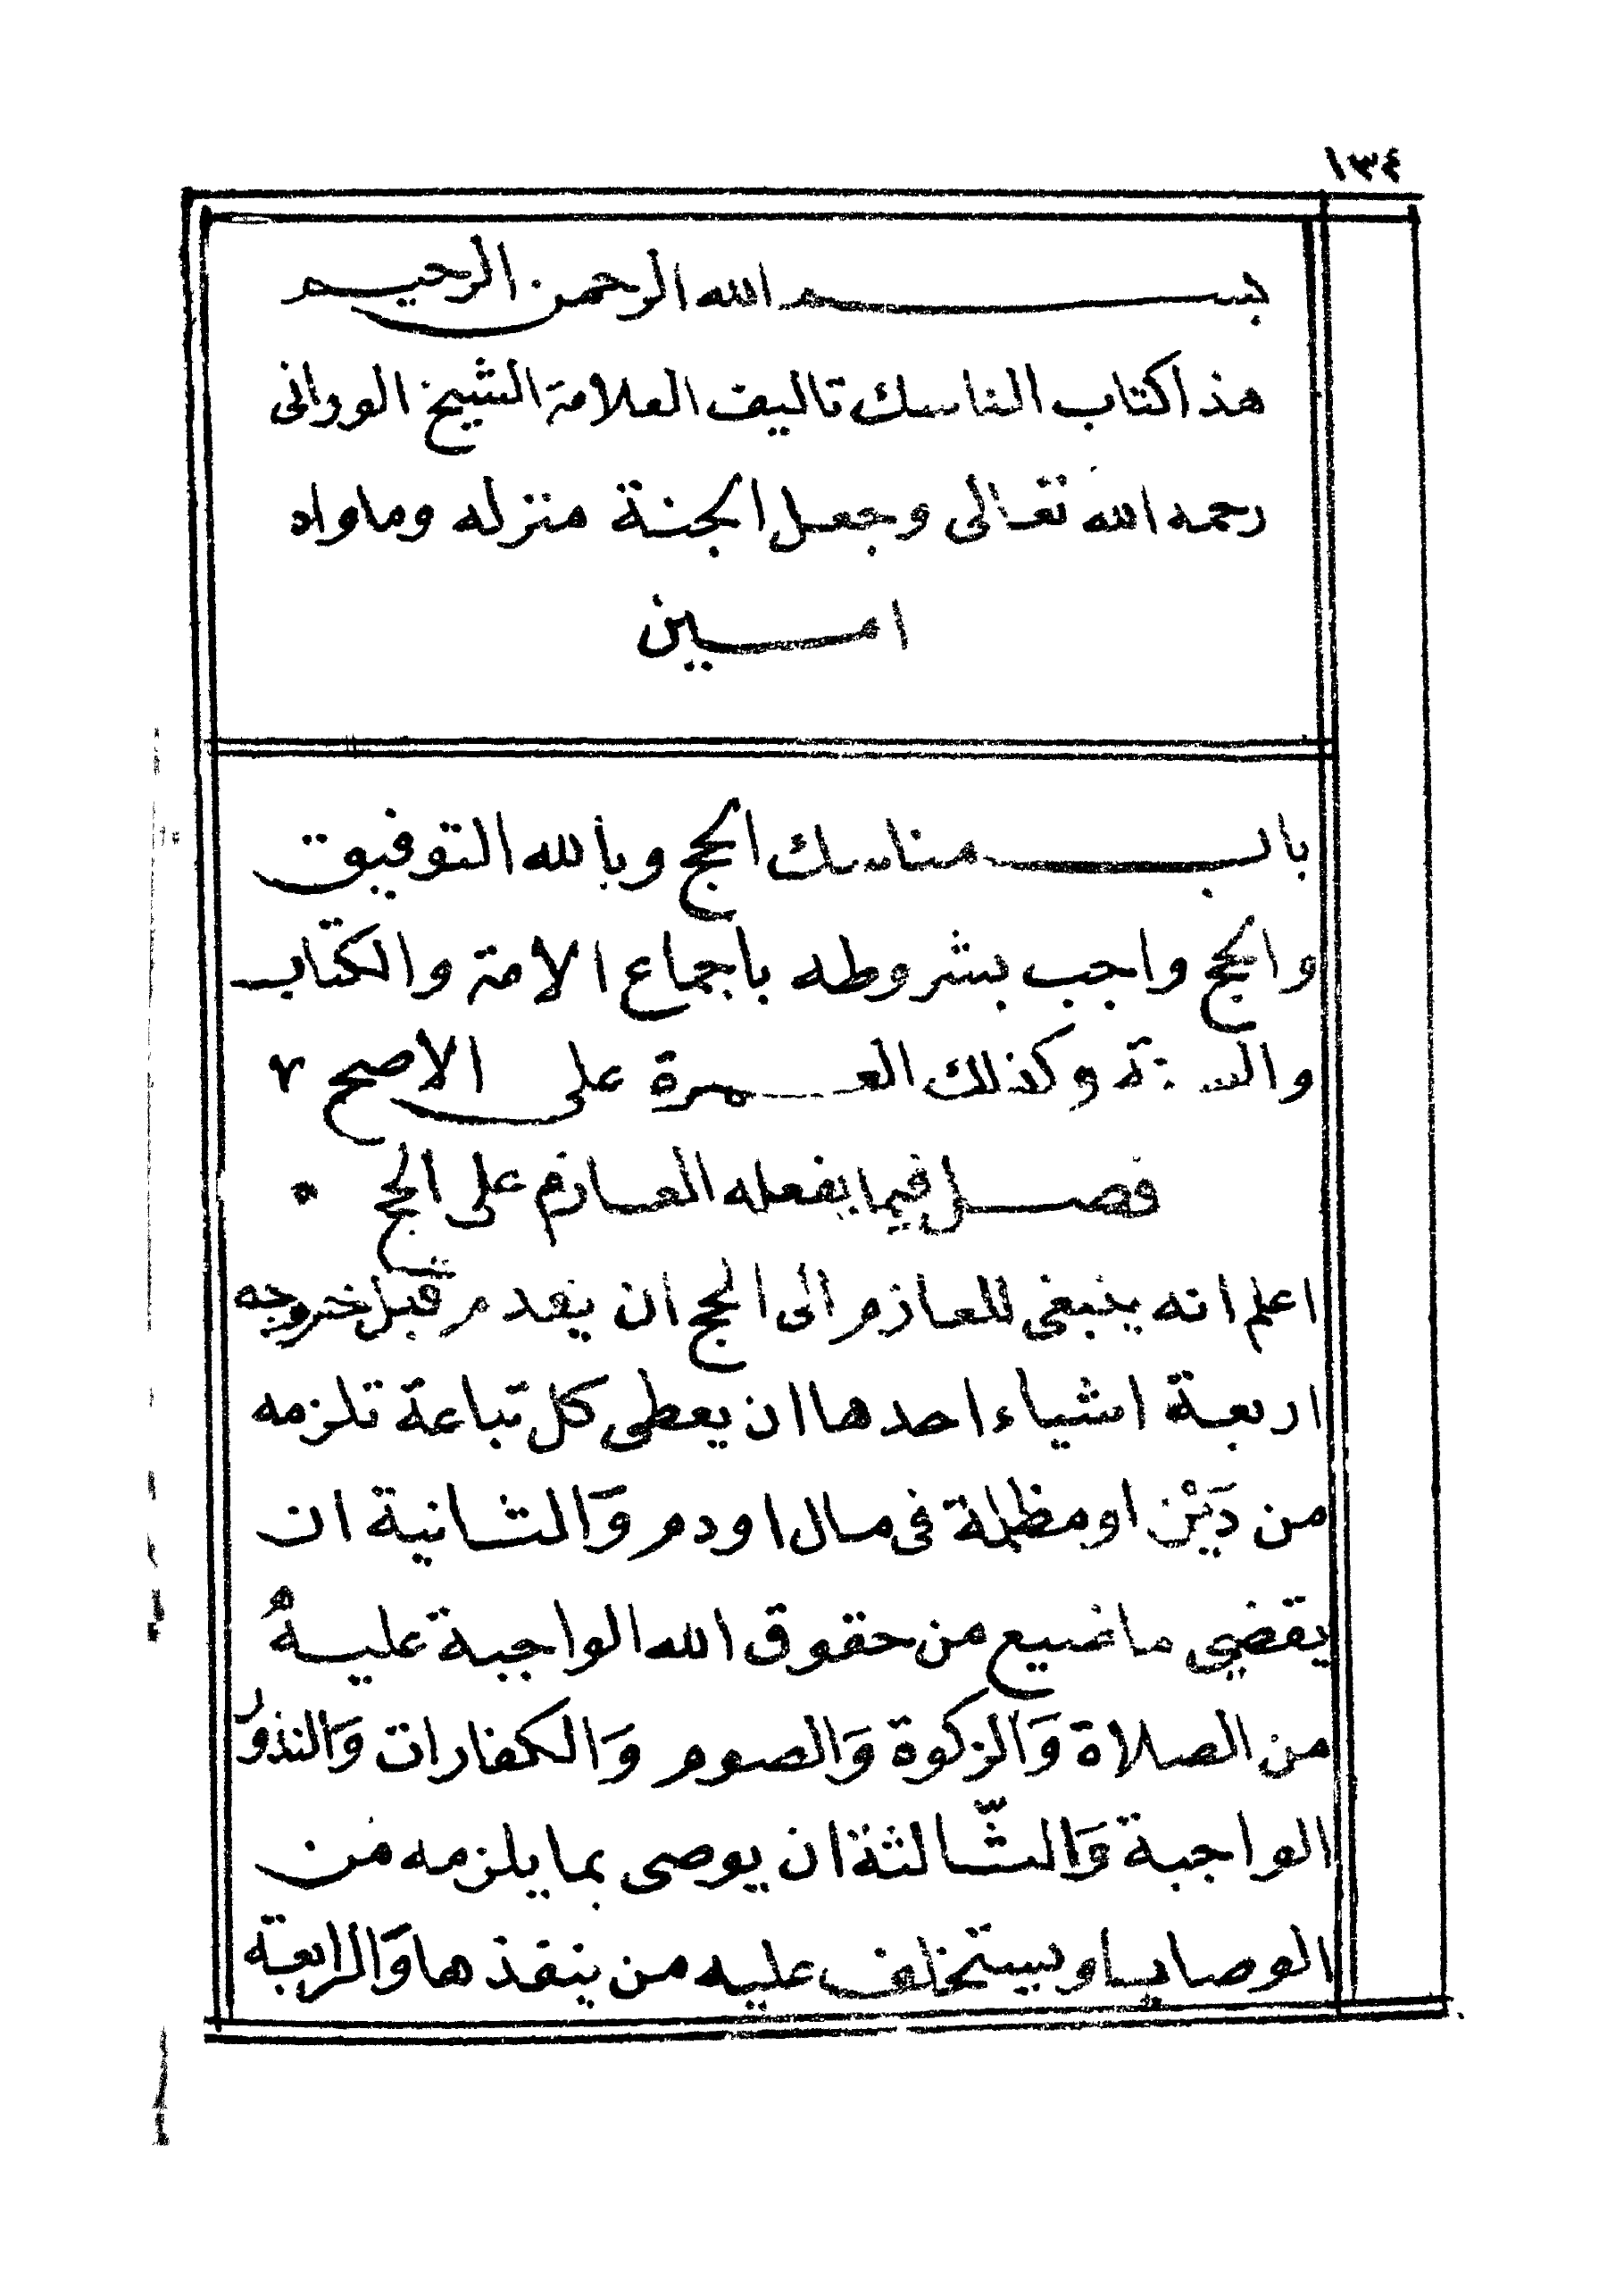 ١٣٤
بسم الله الرحمن الرحيم
هذا كتاب المناسك تاليف العلامة الشيخ الوراني
رحمه الله تعالى وجعل الجنة منزله وماواه
امين
باب مناسك الحج وبالله التوفيق
والحج واجب بشروطه باجماع الامة والكتاب
والسنة وكذلك العمرة على الاصح ٧
فصل فيما يفعله العازم على الحج *
اعلم انه ينبغى للعازم الى الحج ان يقدم قبل خروجه
اربعة اشياء احدها ان يعطى كل تباعة تلزمه
من دَيْن او مظلمة فى مال او دم وَالثانية ان
يقضي ما ضيع من حقوق الله الواجبة عليهُ
من الصلاة وَالزكوة وَالصوم وَالكفارات وَالنذور
الواجبة وَالثّالثة ان يوصى بما يلزمه من
الوصايا ويستخلف عليه من ينفذها وَالرابعة